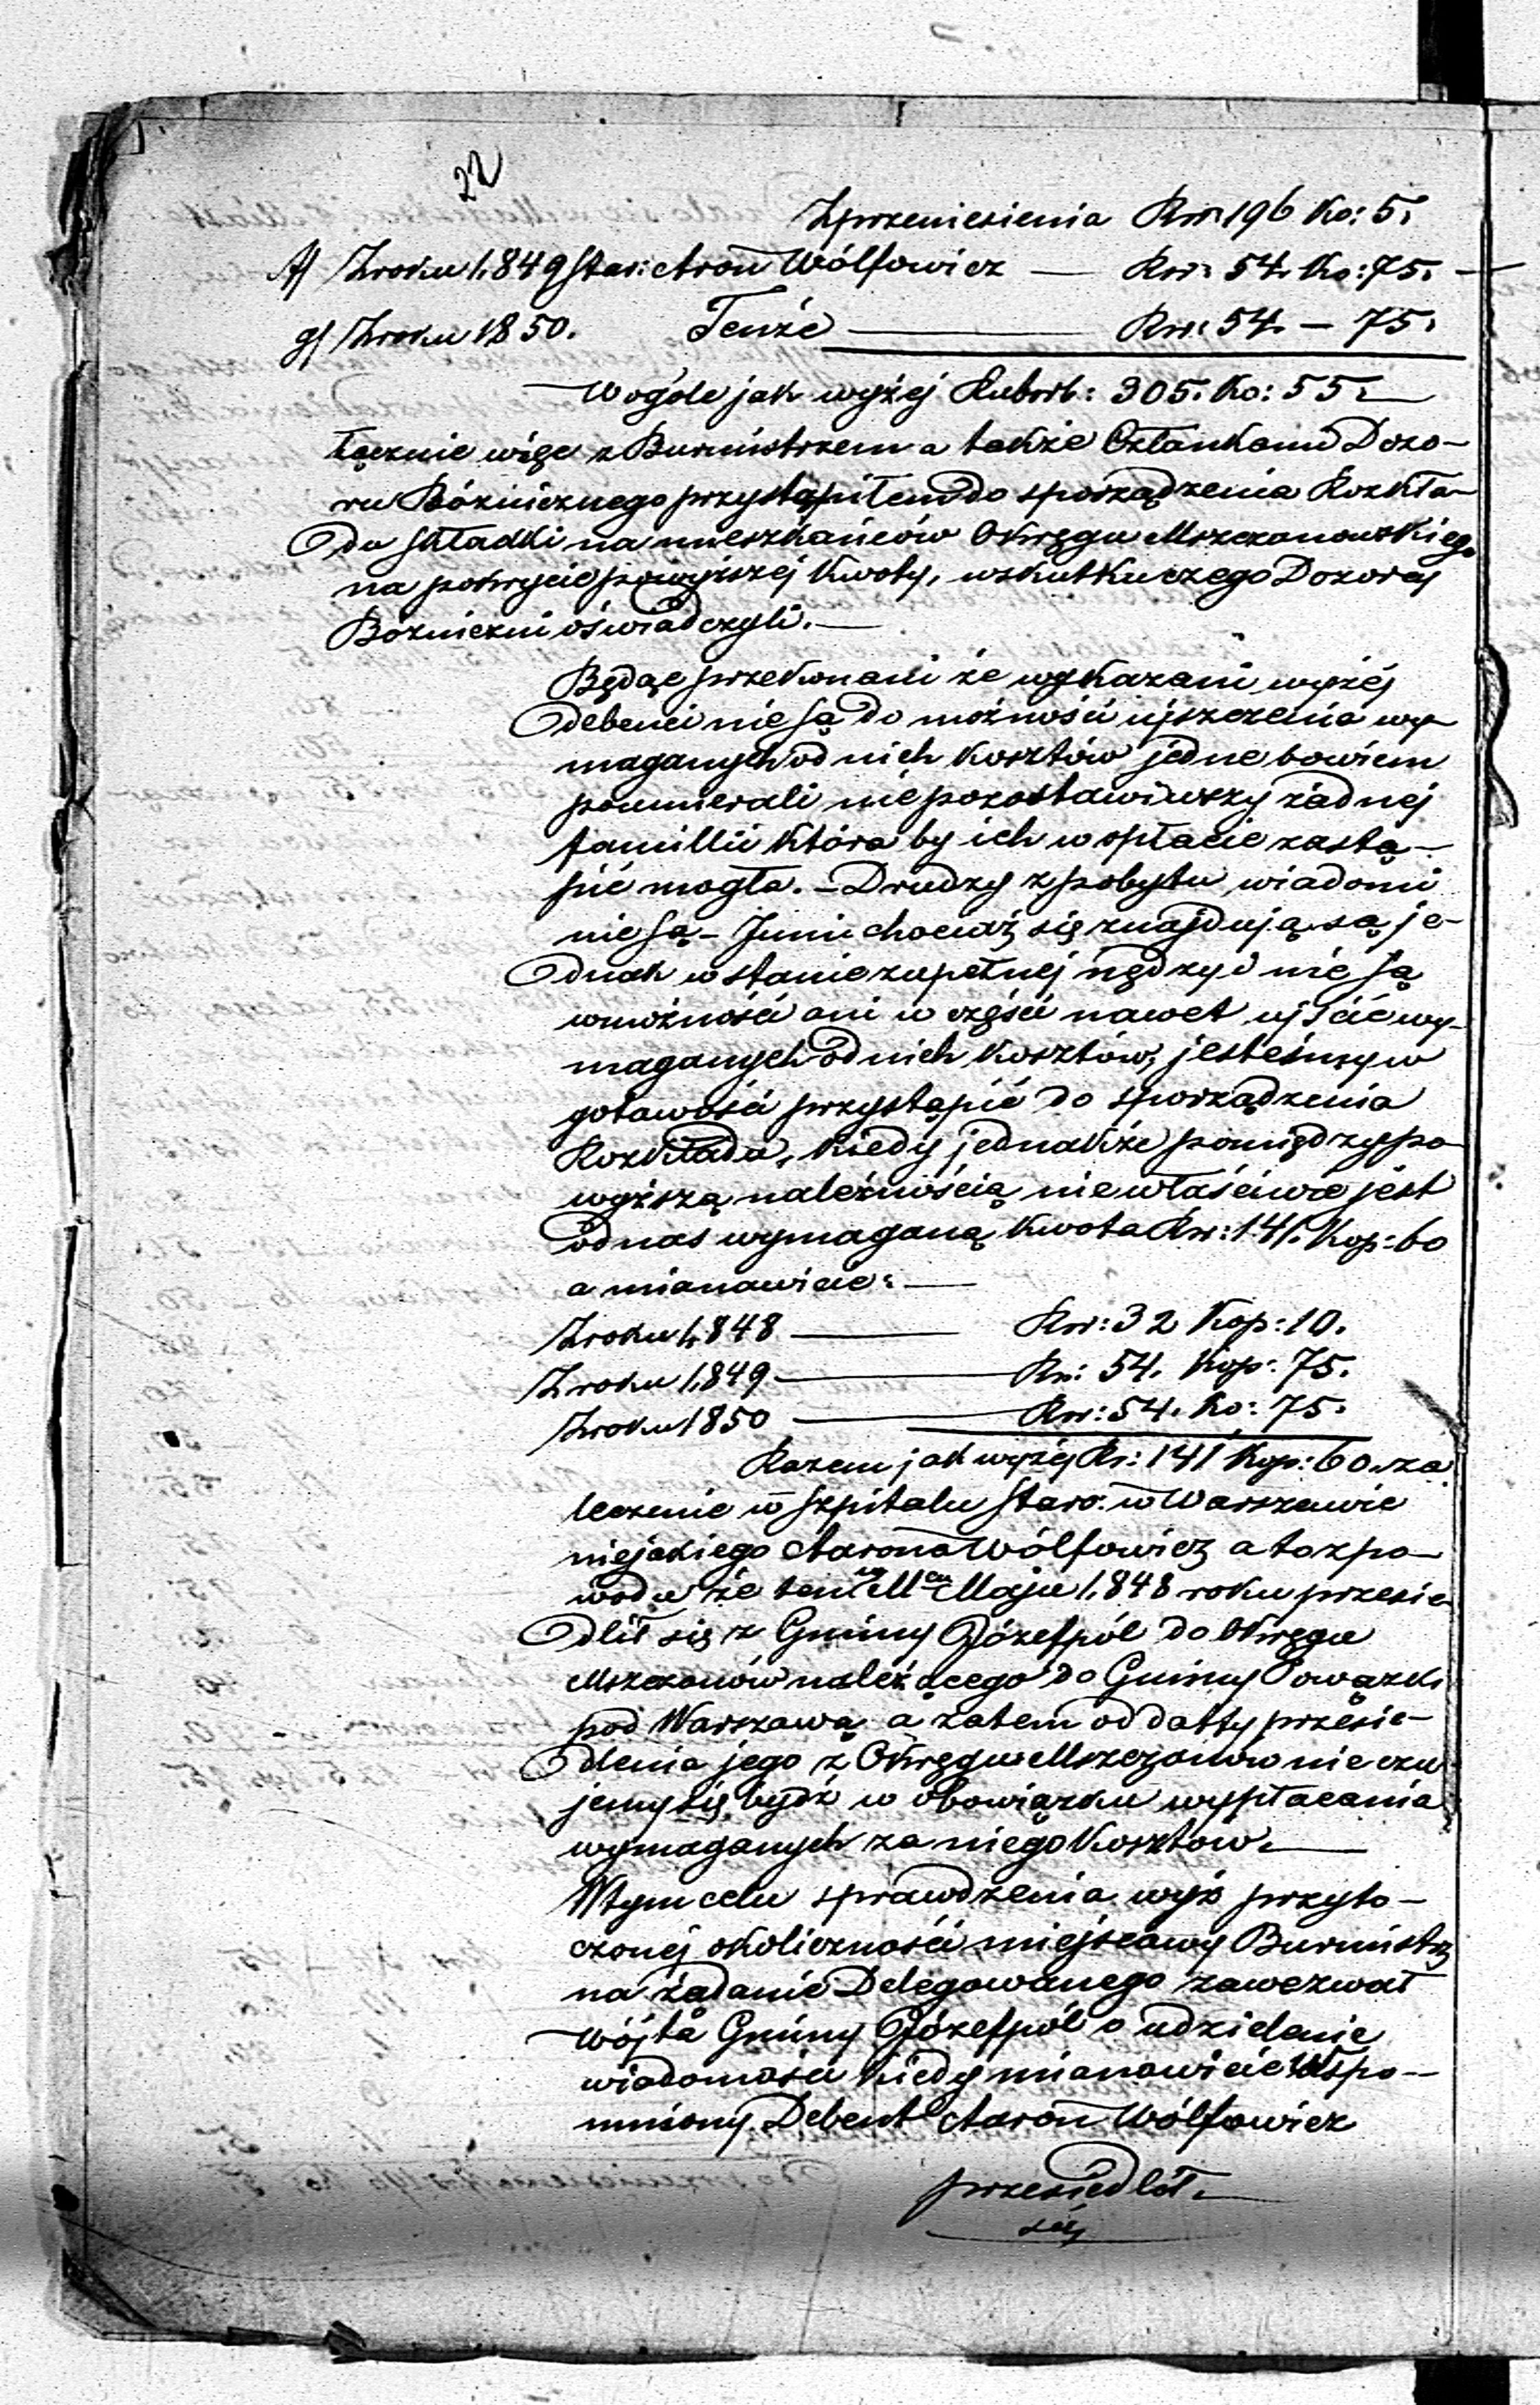 22
Z przeniesienia Rsr: 196 Ko: 5.
f/ Z roku 1,849 Star: Aron Wólfowicz — Rsr: 54. Ko: 75. —
g/ Z roku 1850. Tenże — Rsr: 54. — 75.
W ogóle jak wyżej Rubsrb: 305. Ko: 55. —
Łącznie więc z Burmistrzem a także Członkami Dozo-
ru Bóżniczego przystąpiłem do sporządzenia Rozkła-
du składki na mieszkańców Okręgu Mszczonowskiego
na pokrycie powyższej kwoty, wskutku czego Dozorcy
Bózniczni oświadczyli. —
Będąc przekonani że wykazani wyżéj
debenci nie są do możności uiszczenia wy-
maganych od nich kosztów jedne bowiem
poumierali nie pozostawiwszy żadnej
familii która by ich w opłacie zastą-
pić mogła. — Drudzy z pobytu wiadomi
nie są — Inni chociaż się znajdują są je-
dnak w stanie zupełnej nędzy i nie są
w możności ani w części nawet ujścić wy-
maganych od nich kosztów, jesteśmy w
gotowości przystąpić do sporządzenia
Rozkładu, kiedy jednakże pomiędzy po-
wyższą należnością niewłaściwie jest
od nas wymaganą kwota Rsr: 141. Kop: 60
a mianowicie: —
Z roku 1,848 — Rsr: 32 Kop: 10.
Z roku 1,849 — Rsr: 54. Kop: 75.
Z roku 1850 — Rsr: 54. Ko: 75.
Razem jak wyżej Rs: 141 Kop: 60. za
leczenie w Szpitalu Staro: w Warszawie
niejakiego Aarona Wólfowicz a to z po-
wodu że ten w M-cu Maju 1,848 roku przesie-
dlił się z Gminy Józefpól do Okręgu
Mszczonów należącego do Gminy Powązki
pod Warszawą a zatem od datty przesie-
dlenia jego z Okręgu Mszczonów nie czu-
jemy się bydź w obowiązku wypłacania
wymaganych za niego kosztów. —
W tym celu sprawdzenia wyż przyto-
czonej okoliczności miejscowy Burmistrz
na żądanie Delegowanego zawezwał
Wójta Gminy Józefpól o udzielenie
wiadomości kiedy mianowicie wspo-
mniony Debent Aaron Wólfowicz
przesiedlił
się